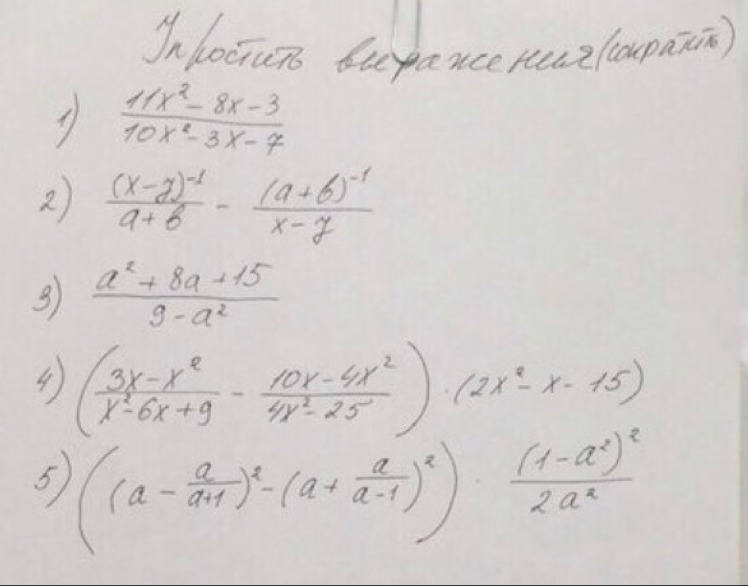 Упростить выражения (сократить)
1) (11x² - 8x - 3)/(10x² - 3x - 7)
2) (x-y)⁻¹/(a+b) - (a+b)⁻¹/(x-y)
3) (a² + 8a + 15)/(9 - a²)
4) ((3x - x²)/(x² - 6x + 9) - (10x - 4x²)/(4x² - 25)) · (2x² - x - 15)
5) ((a - a/(a+1))² - (a + a/(a-1))²) · (1-a²)²/(2a²)